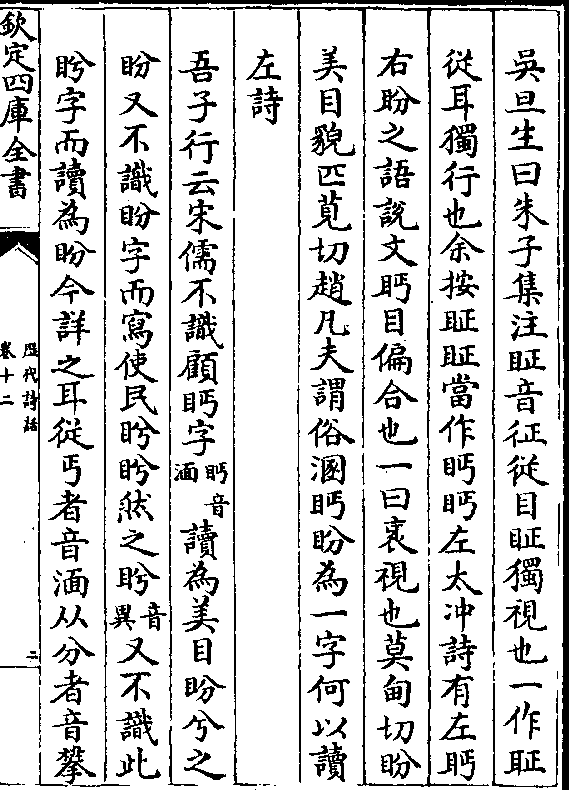 吳旦生曰朱子集注眐音征從目眐獨視也一作聇
從耳獨行也余按眐眐當作眄眄左太冲詩有左眄
右盼之語說文眄目偏合也一曰衺視也莫甸切盼
美目貌匹莧切趙凡夫謂俗溷眄盼為一字何以讀
左詩
吾子行云宋儒不識顧眄字眄音湎讀為美目盼兮之
盼又不識盼字而寫使民盻盻然之盻音異又不識此
盻字而讀為盼今詳之耳從丐者音湎从分者音攀
欽定四庫全書
歷代詩話
卷十二
二